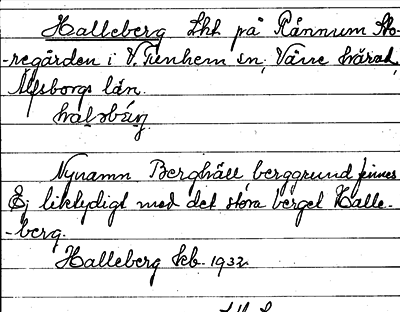 Halleberg Lht på Rånnum Sto-
-regården i V. Tunhem sn, Väne härad,
Älfsborgs län.
Nynamn Berghäll berggrund finnes
Ej liktydigt med det stora berget Halle-
-berg.
Halleberg kb. 1932